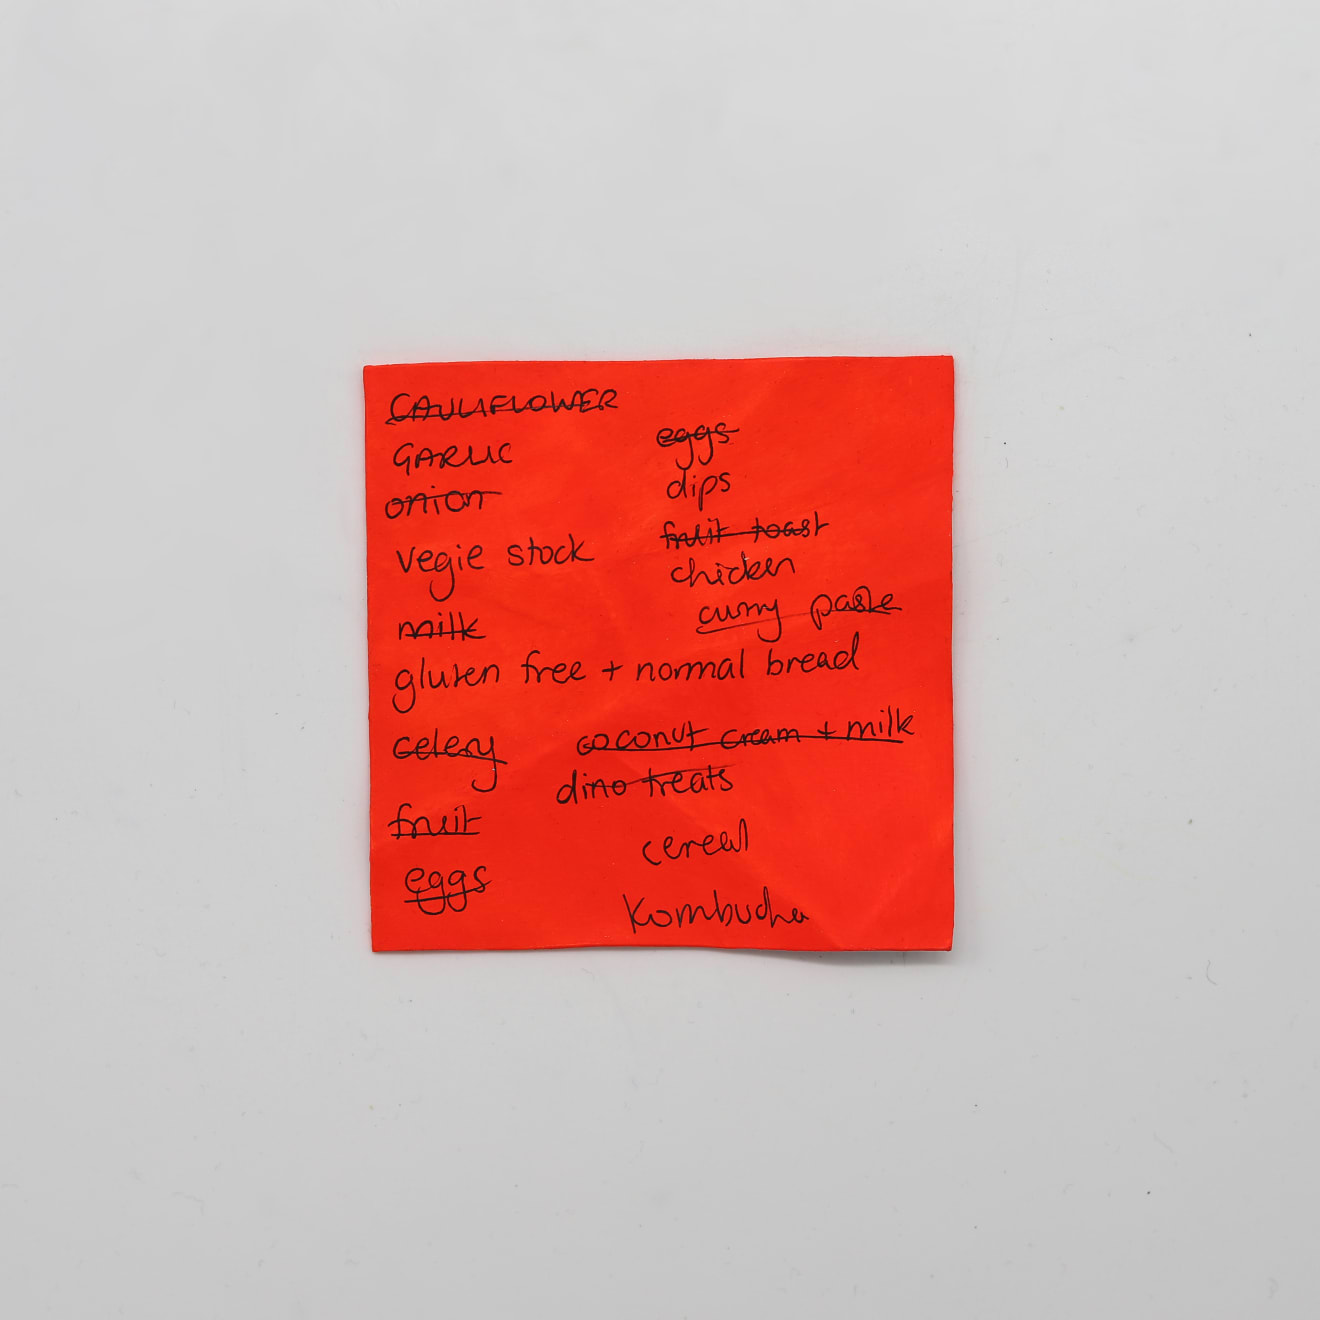 CAULIFLOWER
GARLIC
onion
vegie stock
milk
eggs
dips
fruit toast
chicken
curry paste
gluten free + normal bread
celery
fruit
eggs
coconut cream + milk
dino treats
cereal
Kombucha